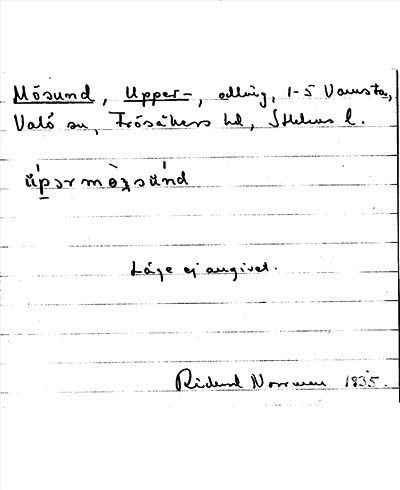 Mösund, Upper-, odling, 1-5 Vamsta,
Valö sn, Frösåkers hd, Sthlms l.
ùpərmòzsùnd
Läge ej angivet.
Richard Norrman 1935.